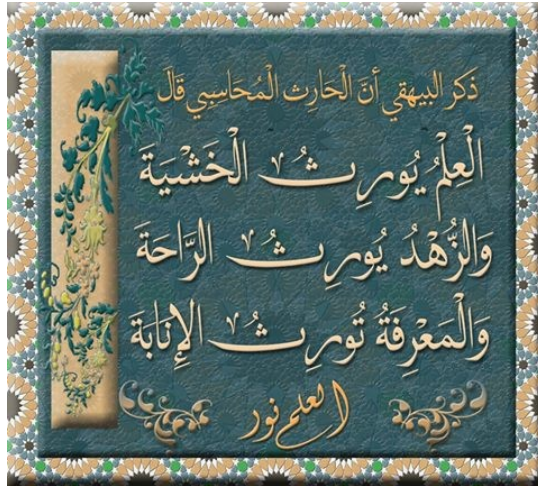 ذكر البيهقي أنَّ الْحَارِث الْمُحَاسِبِي قَالَ
الْعِلْمُ يُورِثُ الْخَشْيَةَ
وَالزُّهْدُ يُورِثُ الرَّاحَةَ
وَالْمَعْرِفَةُ تُورِثُ الإِنَابَةَ
العلم نور